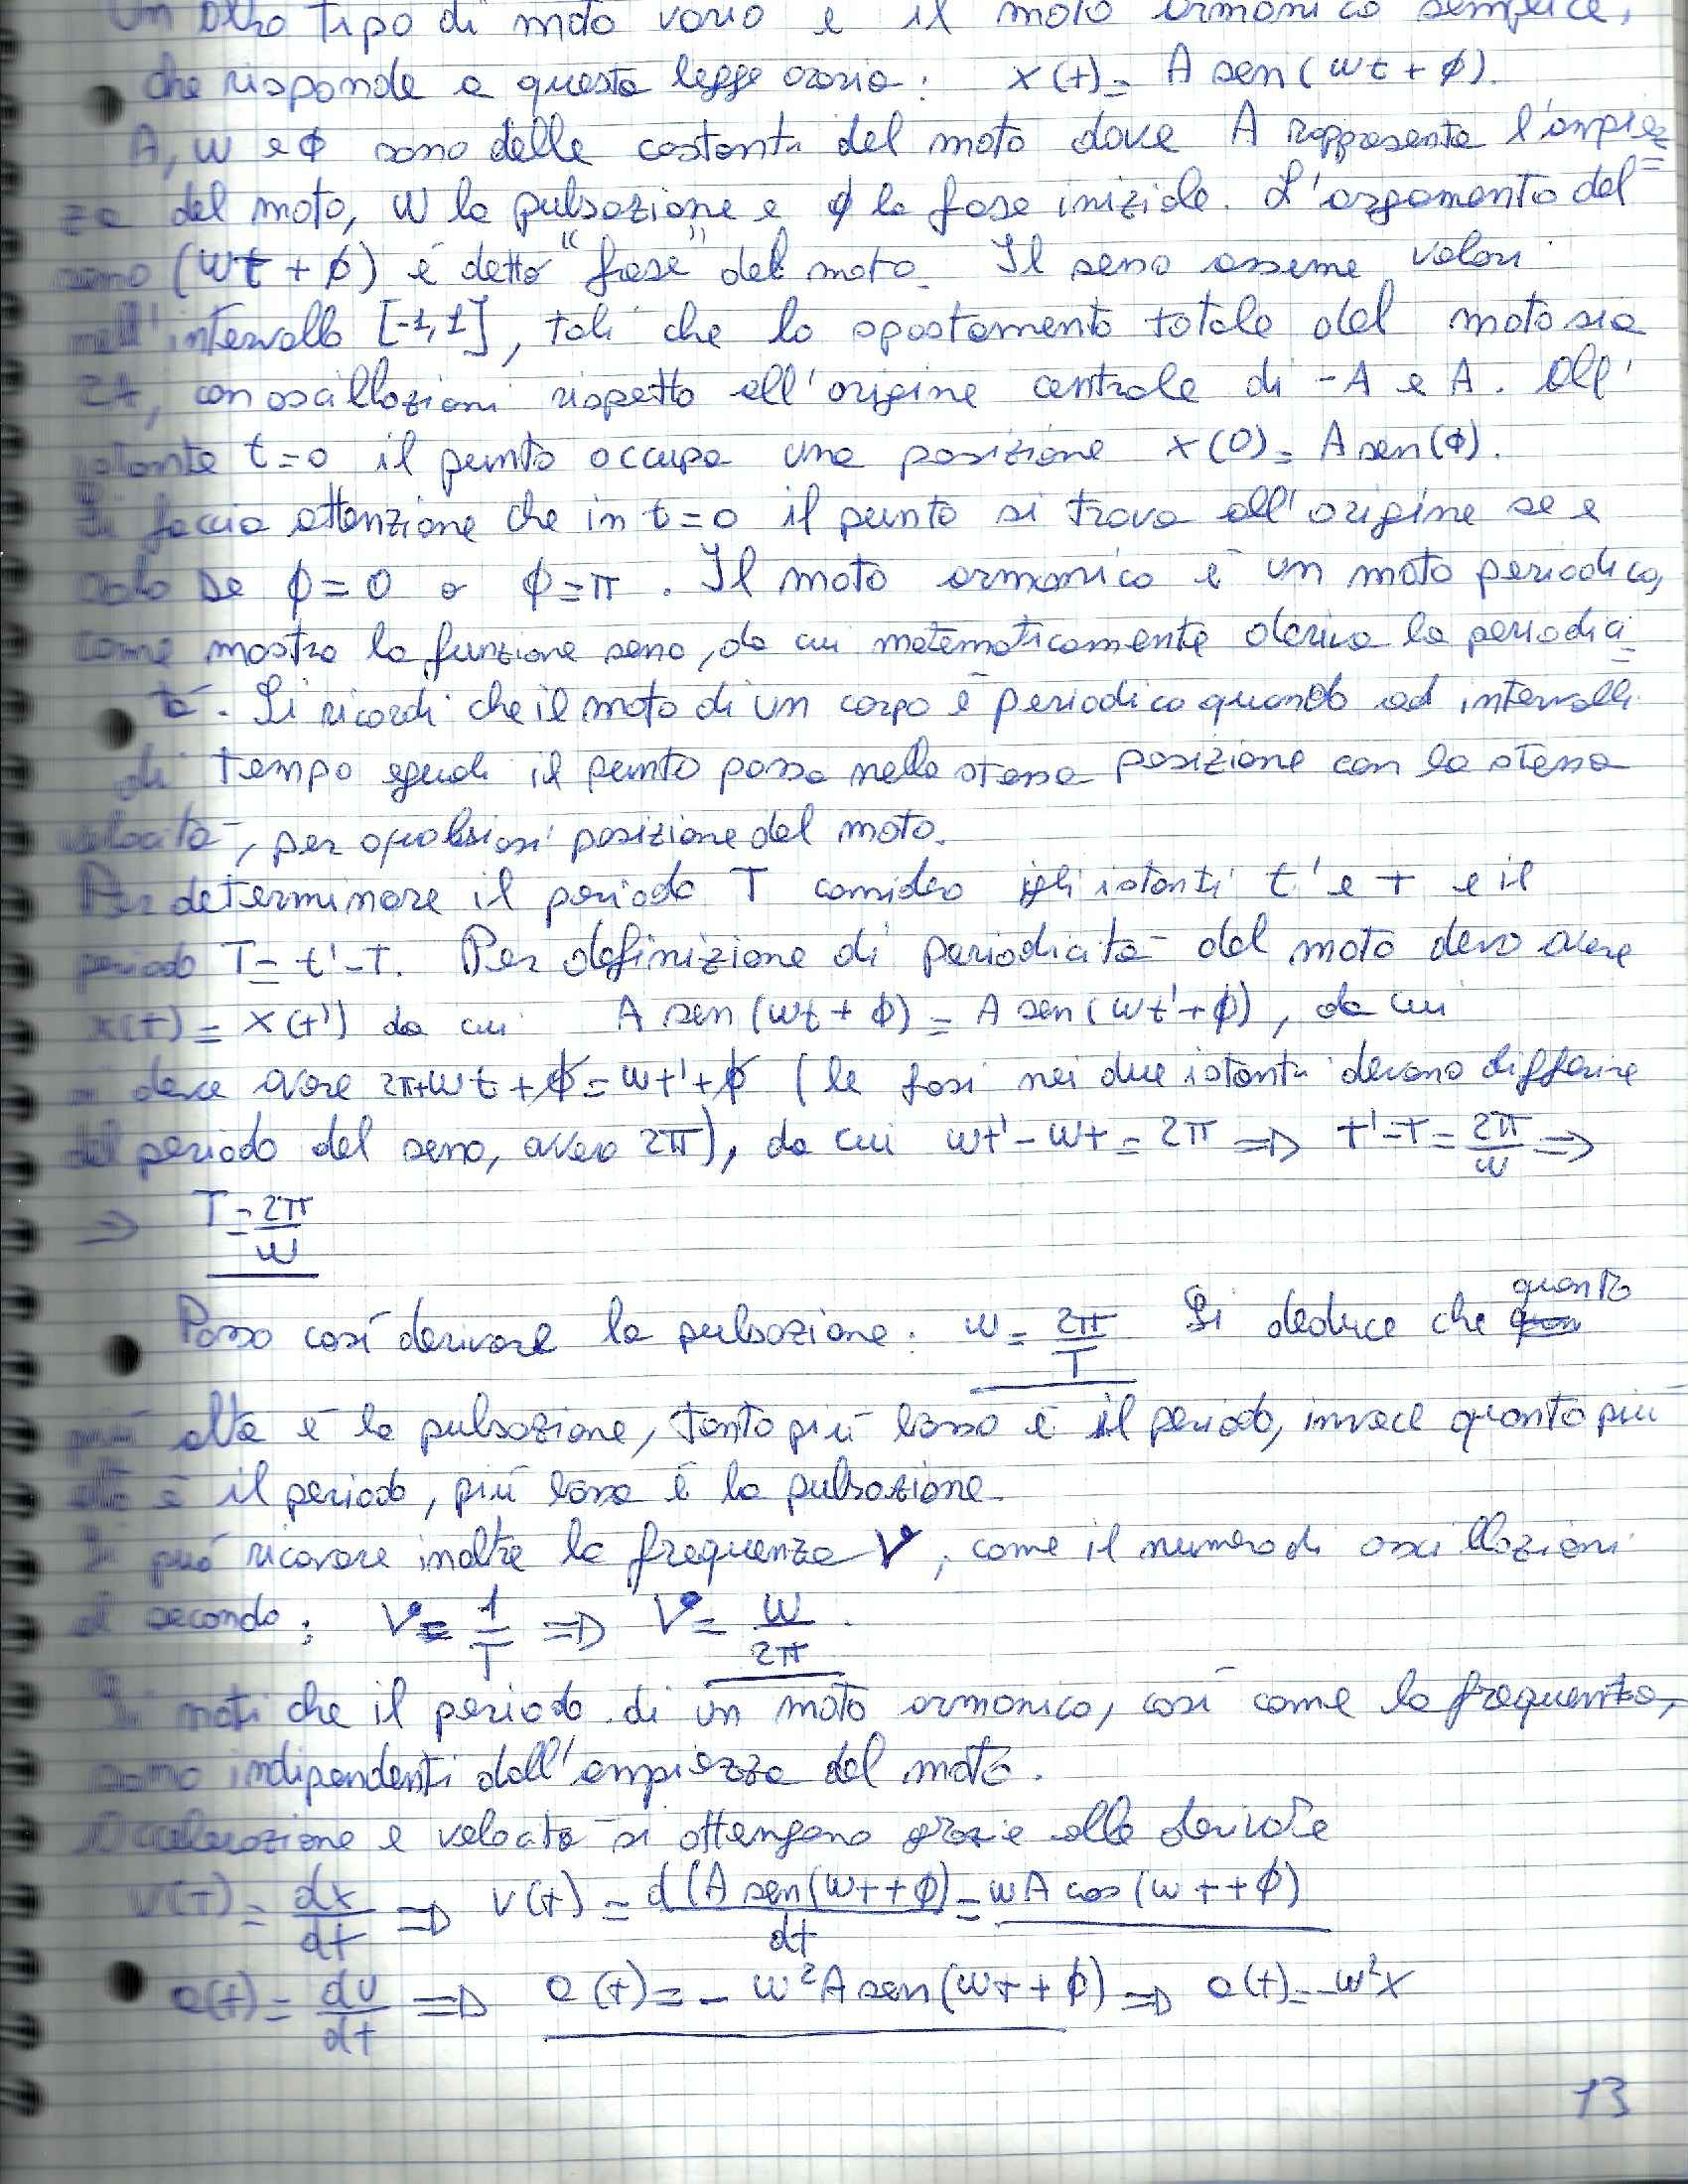 Un altro tipo di moto vario è il moto armonico semplice,
che risponde a questa legge oraria: x(t) = A sen(wt + ϕ).
A, w e ϕ sono delle costanti del moto dove A rappresenta l'ampiez=
za del moto, w la pulsazione e ϕ la fase iniziale. L'argomento del
seno (wt + ϕ) è detto "fase" del moto. Il seno assume valori
nell'intervallo [-1,1], tali che lo spostamento totale del moto sia
2A, con oscillazioni rispetto all'origine centrale di -A e A. All'
istante t=0 il punto occupa una posizione x(0) = A sen(ϕ).
Si faccia attenzione che in t=0 il punto si trova all'origine se e
solo se ϕ=0 o ϕ=π. Il moto armonico è un moto periodico,
come mostra la funzione seno, da cui matematicamente deriva la periodici=
tà. Si ricordi che il moto di un corpo è periodico quando ad intervalli
di tempo eguali il punto passa nella stessa posizione con la stessa
velocità, per qualsiasi posizione del moto.
Per determinare il periodo T considero gli istanti t' e t e il
periodo T = t'-t. Per definizione di periodicità del moto devo avere
x(t) = x(t') da cui A sen(wt + ϕ) = A sen(wt' + ϕ), da cui
si deve avere 2π+wt + ϕ = wt' + ϕ (le fasi nei due istanti devono differire
del periodo del seno, ovvero 2π), da cui wt' - wt = 2π ⇒ t'-t = 2π/w ⇒
⇒ T = 2π/w
Posso così derivare la pulsazione: w = 2π/T Si deduce che quanto
più alta è la pulsazione, tanto più basso è il periodo, invece quanto più
alto è il periodo, più bassa è la pulsazione.
Si può ricavare inoltre la frequenza ν, come il numero di oscillazioni
al secondo: ν = 1/T ⇒ ν = w/2π.
Si noti che il periodo di un moto armonico, così come la frequenza,
sono indipendenti dall'ampiezza del moto.
Accelerazione e velocità si ottengono grazie alle derivate
v(t) = dx/dt ⇒ v(t) = d(A sen(wt+ϕ)/dt = wA cos(wt+ϕ)
a(t) = dv/dt ⇒ a(t) = -w²A sen(wt+ϕ) ⇒ a(t) = -w²x
13